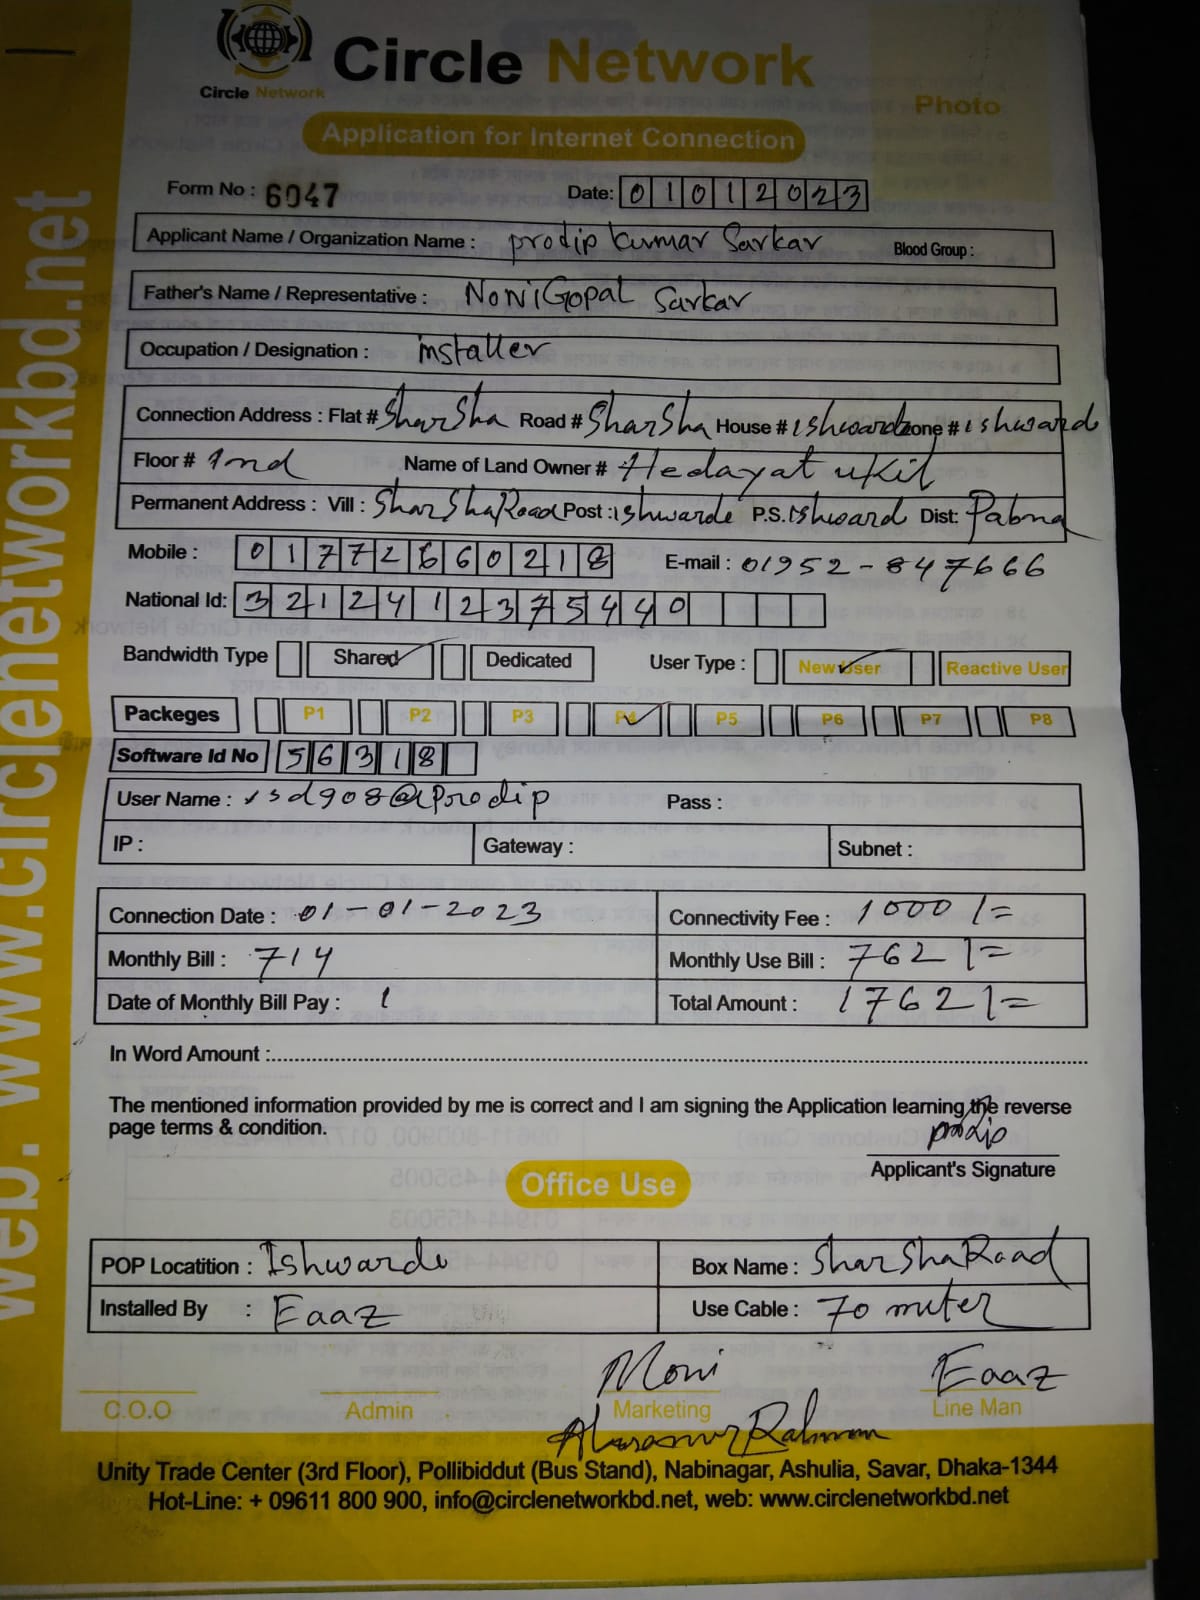 Circle Network
Circle Network
Photo
Application for Internet Connection
Form No : 6047 Date: 01012023
Applicant Name / Organization Name : prodip kumar Sarkar Blood Group :
Father's Name / Representative : NoniGopal Sarkar
Occupation / Designation : installer
Connection Address : Flat # SharSha Road # SharSha House # ishwardi Zone # ishward
Floor # 2nd Name of Land Owner # Hedayat ukil
Permanent Address : Vill : SharShaRoad Post : ishwarde P.S. Ishward Dist: Pabna
Mobile : 01772660218 E-mail : 01952-847666
National Id: 3212412375440
Bandwidth Type Shared Dedicated User Type : New User Reactive User
Packeges P1 P2 P3 P4 P5 P6 P7 P8
Software Id No 56318
User Name : isd908@prodip Pass :
IP : Gateway : Subnet :
Connection Date : 01-01-2023 Connectivity Fee : 1000/=
Monthly Bill : 714 Monthly Use Bill : 762/=
Date of Monthly Bill Pay : 1 Total Amount : 1762/=
In Word Amount :
The mentioned information provided by me is correct and I am signing the Application learning the reverse
page terms & condition.
prodip
Applicant's Signature
Office Use
POP Locatition : Ishwarde Box Name : SharShaRoad
Installed By : Eaaz Use Cable : 70 miter
Moni Eaaz
C.O.O Admin Marketing Line Man
Rahman
Unity Trade Center (3rd Floor), Pollibiddut (Bus Stand), Nabinagar, Ashulia, Savar, Dhaka-1344
Hot-Line: + 09611 800 900, info@circlenetworkbd.net, web: www.circlenetworkbd.net
web: www.circlenetworkbd.net